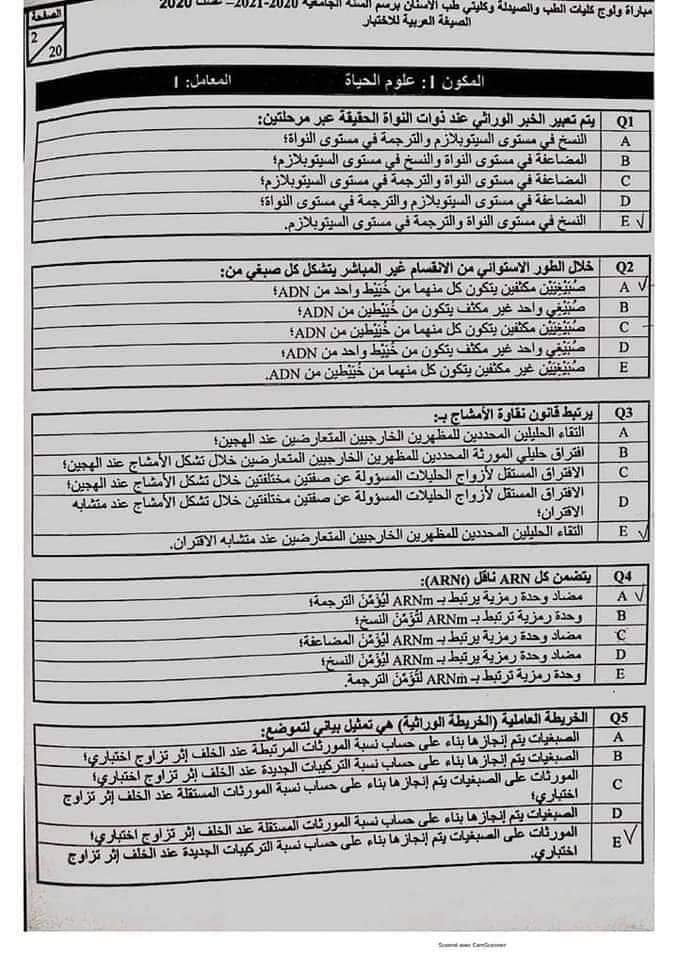 مباراة ولوج كليات الطب والصيدلة وكليتي طب الأسنان برسم السنة الجامعية 2020-2021 – غشت 2020
الصيغة العربية للاختبار
الصفحة
2
20
المكون 1: علوم الحياة المعامل: 1
Q1 يتم تعبير الخبر الوراثي عند ذوات النواة الحقيقة عبر مرحلتين:
A النسخ في مستوى السيتوبلازم والترجمة في مستوى النواة؛
B المضاعفة في مستوى النواة والنسخ في مستوى السيتوبلازم؛
C المضاعفة في مستوى النواة والترجمة في مستوى السيتوبلازم؛
D المضاعفة في مستوى السيتوبلازم والترجمة في مستوى النواة؛
E النسخ في مستوى النواة والترجمة في مستوى السيتوبلازم.
Q2 خلال الطور الاستوائي من الانقسام غير المباشر يتشكل كل صبغي من:
A صُبَيْغِيَيْن مكثفين يتكون كل منهما من خُيَيْط واحد من ADN؛
B صُبَيْغِي واحد غير مكثف يتكون من خُيَيْطين من ADN؛
C صُبَيْغِيَيْن مكثفين يتكون كل منهما من خُيَيْطين من ADN؛
D صُبَيْغِي واحد غير مكثف يتكون من خُيَيْط واحد من ADN؛
E صُبَيْغِيَيْن غير مكثفين يتكون كل منهما من خُيَيْطين من ADN.
Q3 يرتبط قانون نقاوة الأمشاج بـ:
A التقاء الحليلين المحددين للمظهرين الخارجيين المتعارضين عند الهجين؛
B افتراق حليلي المورثة المحددين للمظهرين الخارجيين المتعارضين خلال تشكل الأمشاج عند الهجين؛
C الافتراق المستقل لأزواج الحليلات المسؤولة عن صفتين مختلفتين خلال تشكل الأمشاج عند الهجين؛
D الافتراق المستقل لأزواج الحليلات المسؤولة عن صفتين مختلفتين خلال تشكل الأمشاج عند متشابه
الاقتران؛
E التقاء الحليلين المحددين للمظهرين الخارجيين المتعارضين عند متشابه الاقتران.
Q4 يتضمن كل ARN ناقل (ARNt):
A مضاد وحدة رمزية يرتبط بـ ARNm ليُؤَمِّنَ الترجمة؛
B وحدة رمزية ترتبط بـ ARNm لتُؤَمِّنَ النسخ؛
C مضاد وحدة رمزية يرتبط بـ ARNm ليُؤَمِّنَ المضاعفة؛
D مضاد وحدة رمزية يرتبط بـ ARNm ليُؤَمِّنَ النسخ؛
E وحدة رمزية ترتبط بـ ARNm لتُؤَمِّنَ الترجمة.
Q5 الخريطة العاملية (الخريطة الوراثية) هي تمثيل بياني لتموضع:
A الصبغيات يتم إنجازها بناء على حساب نسبة المورثات المرتبطة عند الخلف إثر تزاوج اختباري؛
B الصبغيات يتم إنجازها بناء على حساب نسبة التركيبات الجديدة عند الخلف إثر تزاوج اختباري؛
C المورثات على الصبغيات يتم إنجازها بناء على حساب نسبة المورثات المستقلة عند الخلف إثر تزاوج
اختباري؛
D الصبغيات يتم إنجازها بناء على حساب نسبة المورثات المستقلة عند الخلف إثر تزاوج اختباري؛
E المورثات على الصبغيات يتم إنجازها بناء على حساب نسبة التركيبات الجديدة عند الخلف إثر تزاوج
اختباري.
Scanné avec CamScanner